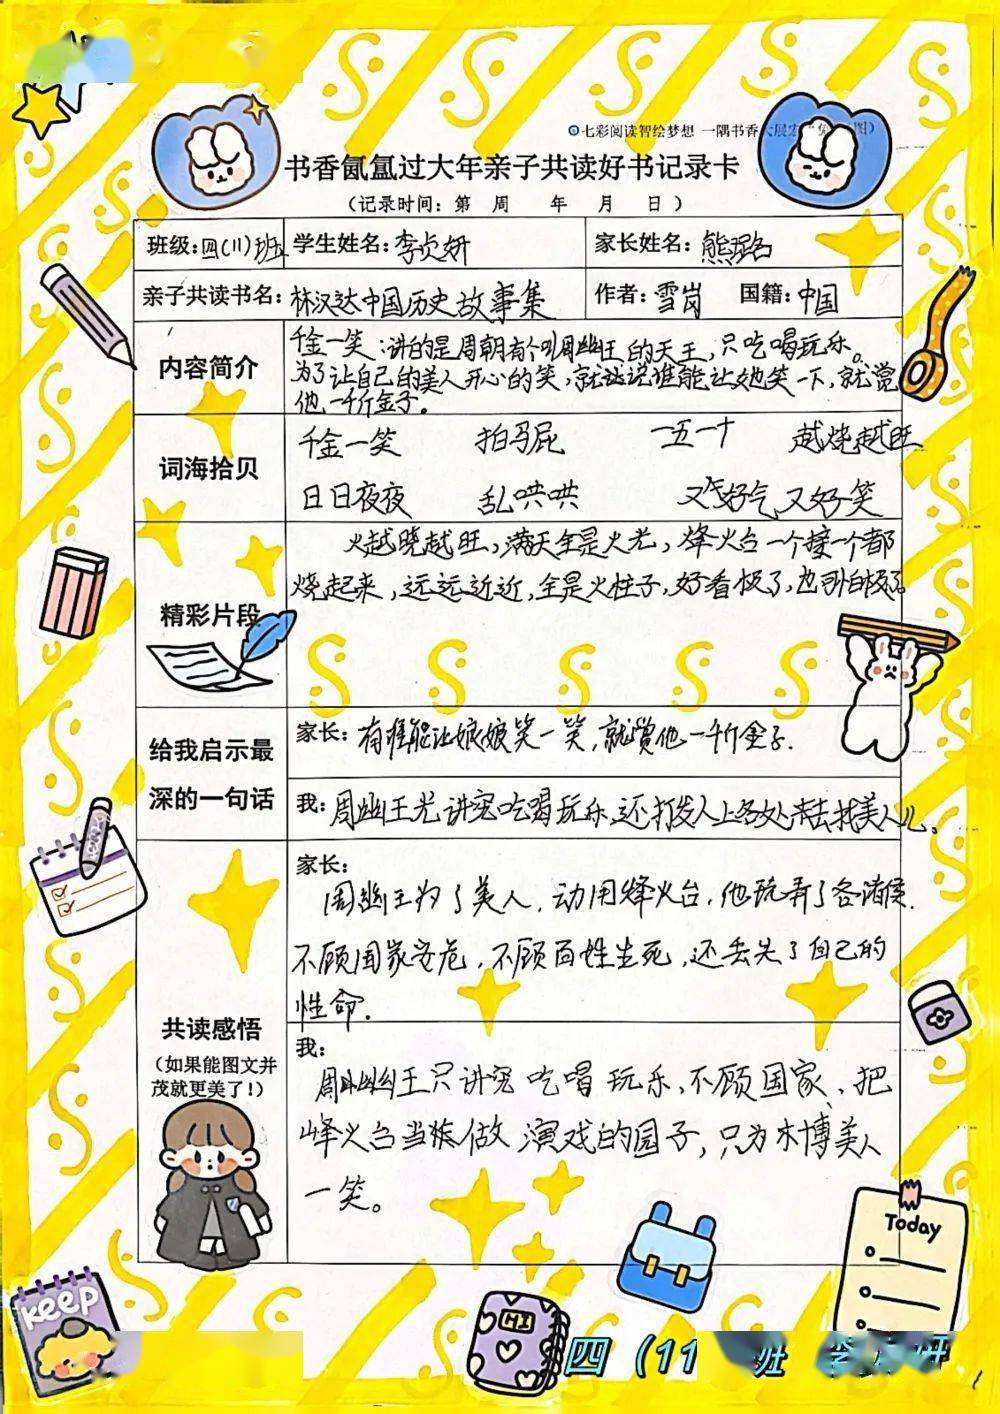 七彩阅读智绘梦想 一隅书香
书香氤氲过大年亲子共读好书记录卡
（记录时间：第 周 年 月 日）
班级：四(11)班 学生姓名：李贞妍 家长姓名：熊璐
亲子共读书名：林汉达中国历史故事集 作者：雪岗 国籍：中国
内容简介
千金一笑：讲的是周朝有个叫周幽王的天王，只吃喝玩乐。
为了让自己的美人开心的笑，就说谁能让她笑一下，就赏
他一千斤金子。
词海拾贝
千金一笑 拍马屁 一五一十 越烧越旺
日日夜夜 乱哄哄 又好气又好笑
精彩片段
火越烧越旺，满天全是火光，烽火台一个接一个都
烧起来，远远近近，全是火柱子，好看极了，也可怕极了。
给我启示最
深的一句话
家长：有谁能让娘娘笑一笑，就赏他一千斤金子.
我：周幽王光讲究吃喝玩乐，还打发人上各处去找美人儿。
共读感悟
（如果能图文并
茂就更美了！）
家长：
周幽王为了美人，动用烽火台，他玩弄了各诸侯.
不顾国家安危，不顾百姓生死，还丢失了自己的
性命.
我：
周幽王只讲究吃喝玩乐，不顾国家，把
烽火台当做演戏的园子，只为博美人
一笑。
Today
keep
HI
四（11 班